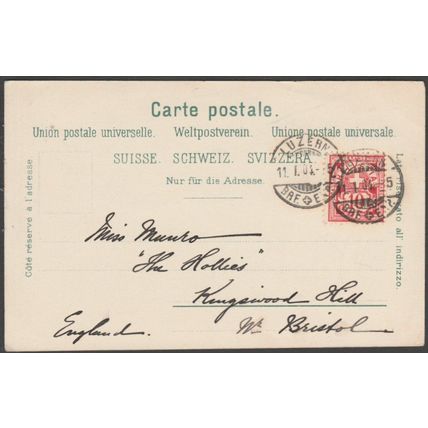 Carte postale.
Union postale universelle. Weltpostverein. Unione postale universale.
SUISSE. SCHWEIZ. SVIZZERA.
Nur für die Adresse.
Côté réservé à l'adresse.
Lato riservato all' indirizzo.
LUZERN
11. I. 04.
BRF. EXP.
10
5
Miss Munro
"The Hollies"
Kingswood Hill
England. Nr. Bristol